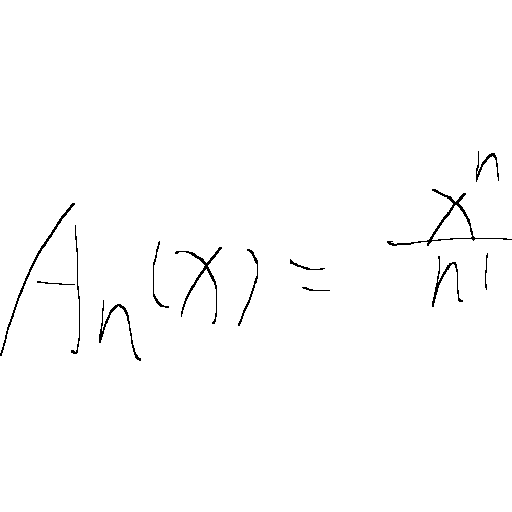 A_n(x) = \frac{x^n}{n!}